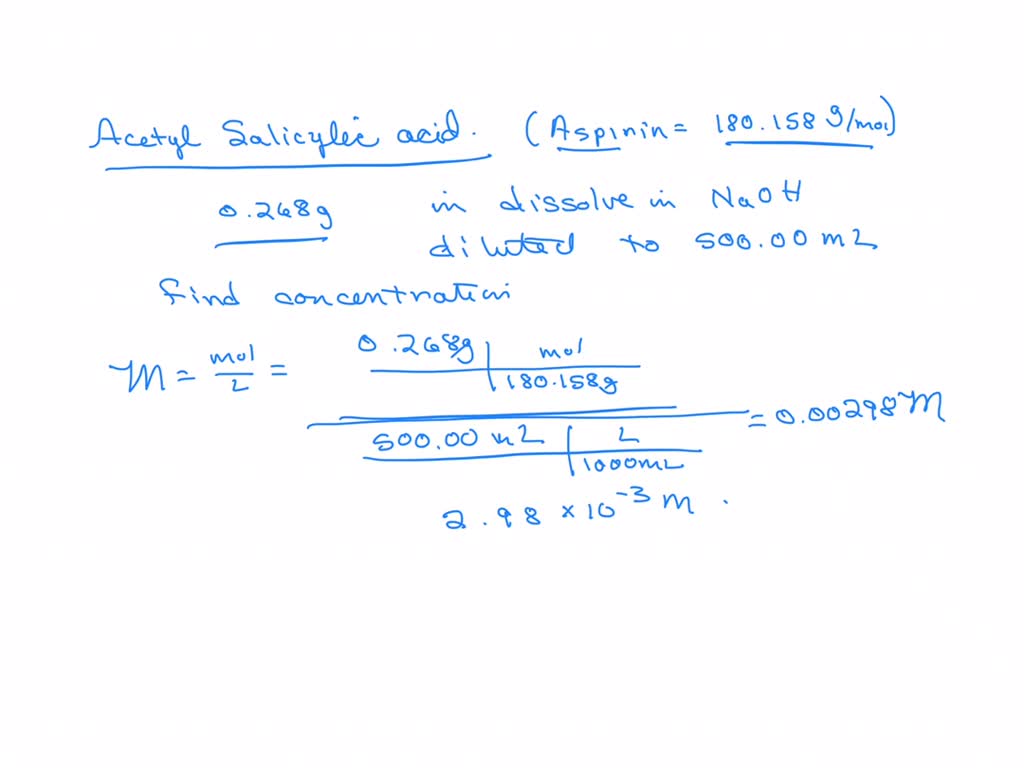 Acetyl Salicylic acid. (Aspinin = 180.158 g/mol)
0.268g in dissolve in NaOH
diluted to 500.00 mL
find concentration
M = mol/L = 0.268g | mol / 180.158g
500.00 mL | L / 1000mL = 0.00298 M
2.98 × 10⁻³ M.